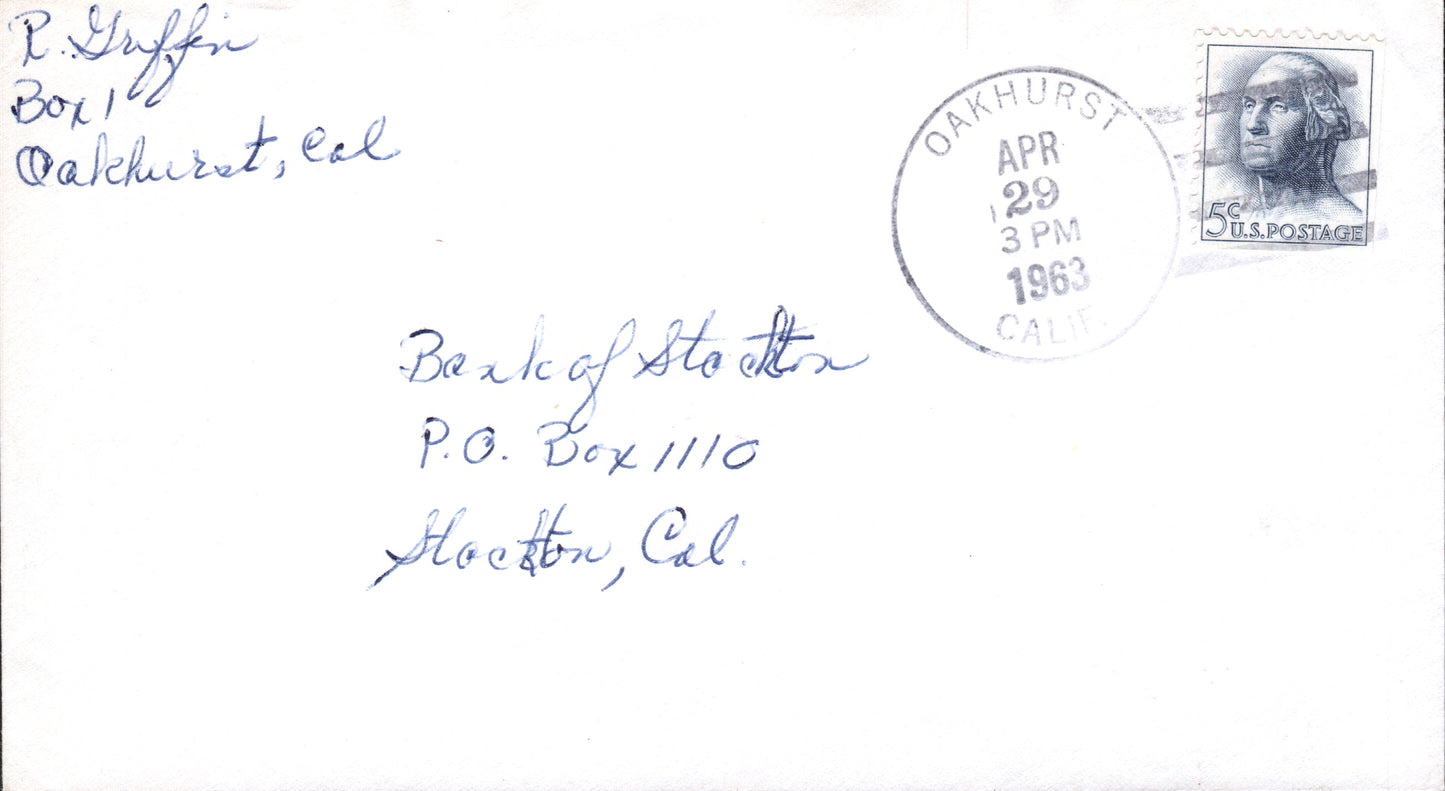 R. Griffin
Box 1
Oakhurst, Cal
OAKHURST
APR
29
3 PM
1963
CALIF.
5c
U.S. POSTAGE
Bank of Stockton
P.O. Box 1110
Stockton, Cal.